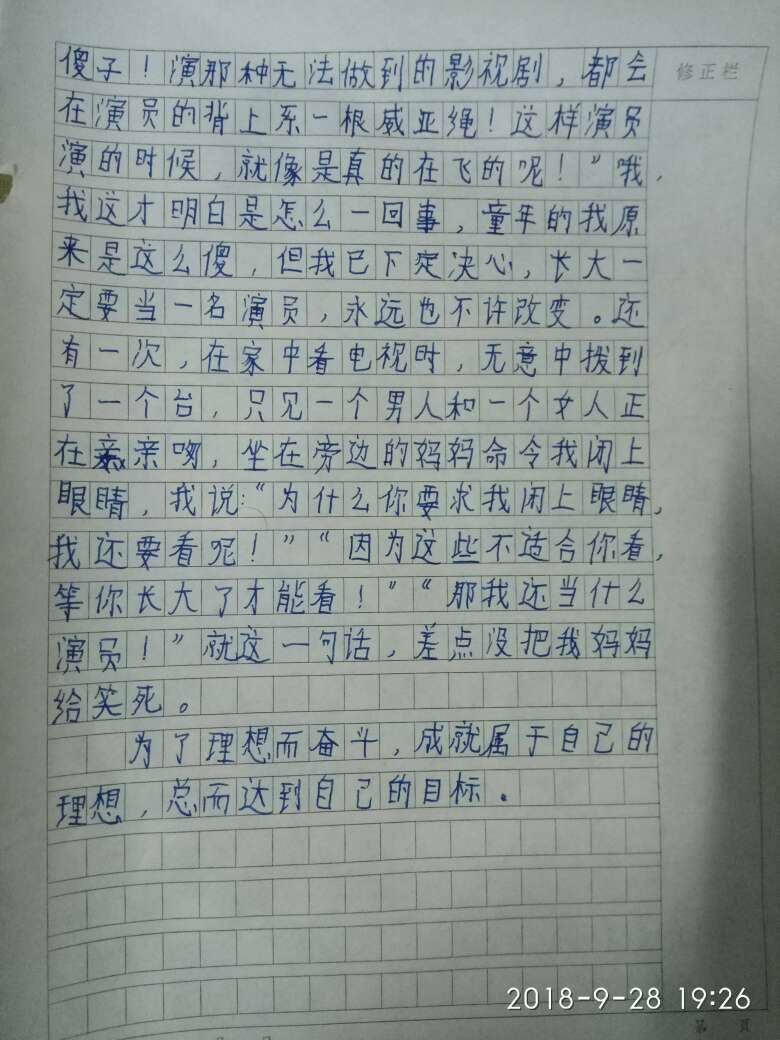 傻子！演那种无法做到的影视剧，都会
修正栏
在演员的背上系一根威亚绳！这样演员
演的时候，就像是真的在飞的呢！”哦，
我这才明白是怎么一回事，童年的我原
来是这么傻，但我已下定决心，长大一
定要当一名演员，永远也不许改变。还
有一次，在家中看电视时，无意中拨到
了一个台，只见一个男人和一个女人正
在亲吻，坐在旁边的妈妈命令我闭上
眼睛，我说：“为什么你要求我闭上眼睛，
我还要看呢！”“因为这些不适合你看，
等你长大了才能看！”“那我还当什么
演员！”就这一句话，差点没把我妈妈
给笑死。
为了理想而奋斗，成就属于自己的
理想，总而达到自己的目标。
2018-9-28 19:26
第 页